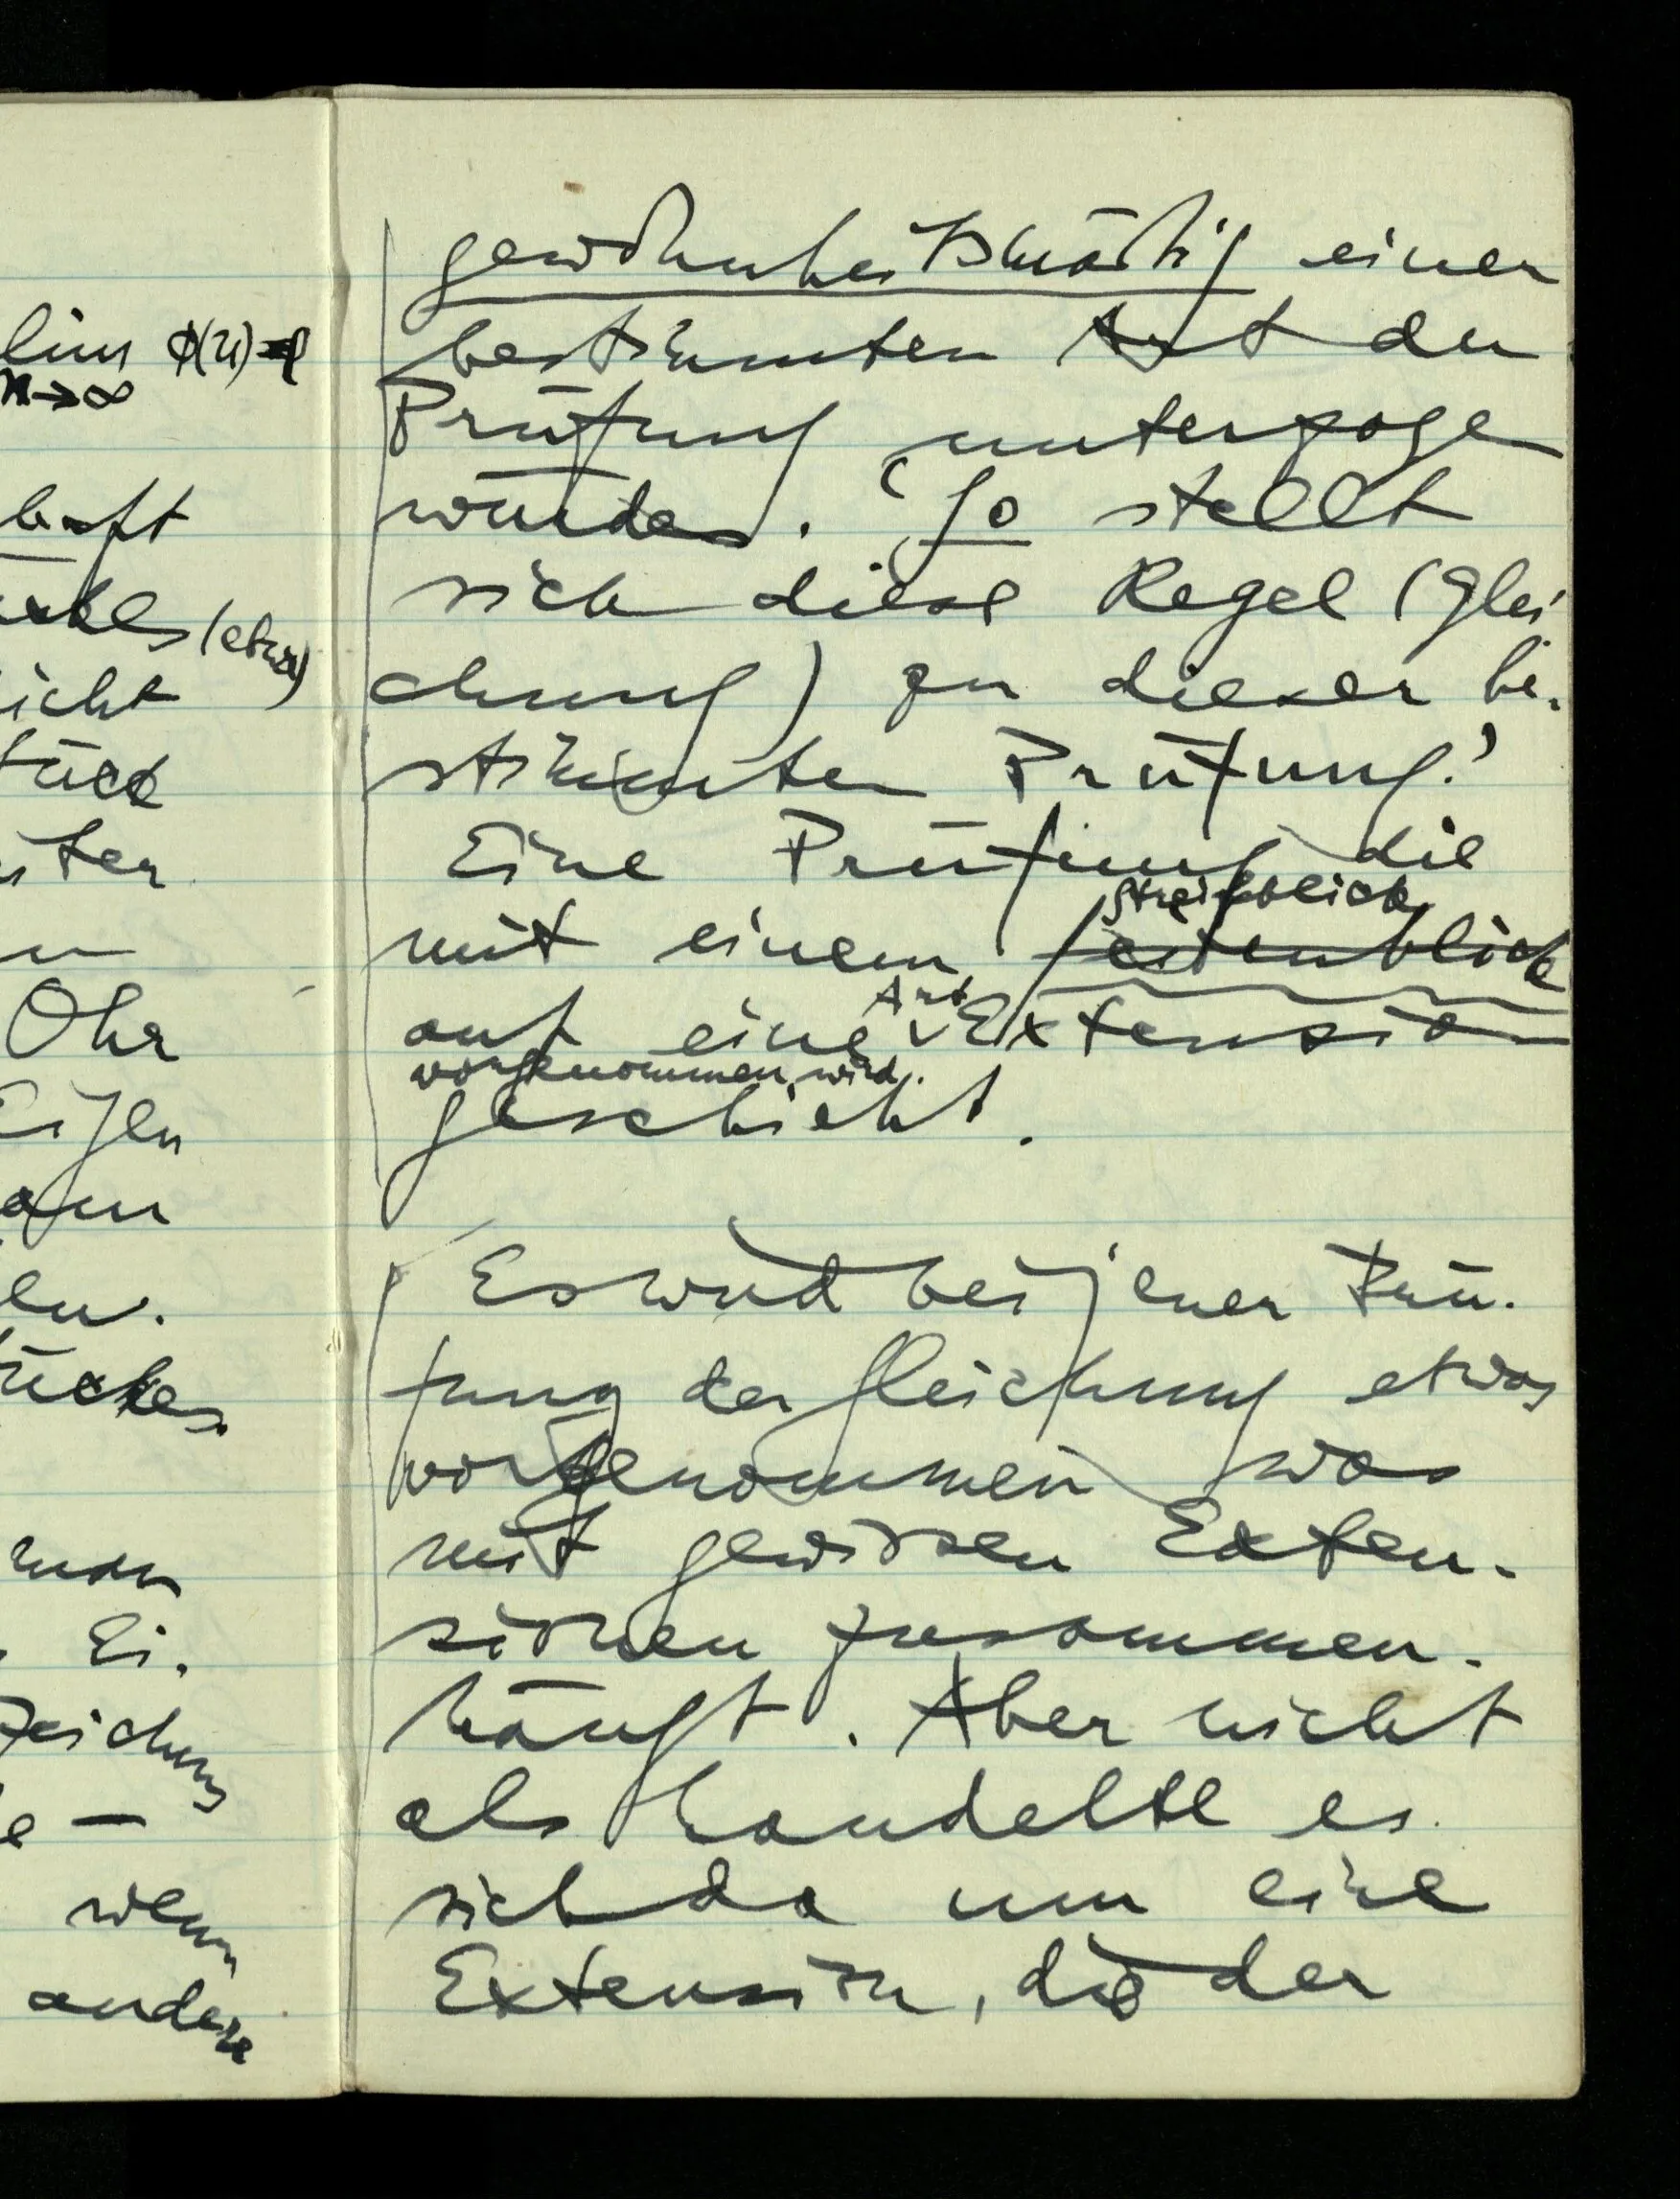 lim ϕ(n) =
n→∞
haft
(etwa)
icht
tück
ter
Ohr
len.
tückes
Ei.
zeichung
e —
wenn
andere
gewohnheitsmäßig einer
bestimmten Art der
Prüfung unterzoge
würden. 'So stellt
sich diese Regel (Glei
chung) zu dieser be-
stimmten Prüfung.'
Eine Prüfung die
Streifblick
mit einem Seitenblick
Art
auf eine Extension
vorgenommen wird.
geschieht.
Es wird bei jener Prü-
fung der Gleichung etwas
vorgenommen was
mit gewissen Exten-
sionen zusammen-
hängt. Aber nicht
als handelte es
sich da um eine
Extension, die der